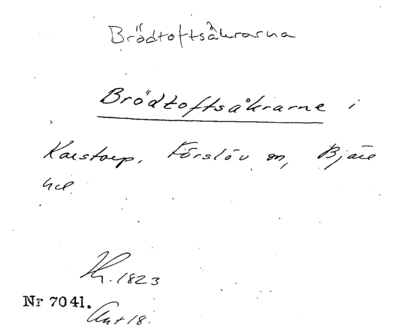 Brödtoftsåkrarna
Brödtoftsåkrarne i
Karstorp, Förslöv sn, Bjäre
hd
H. 1823
Nr 7041.
Akt 18.